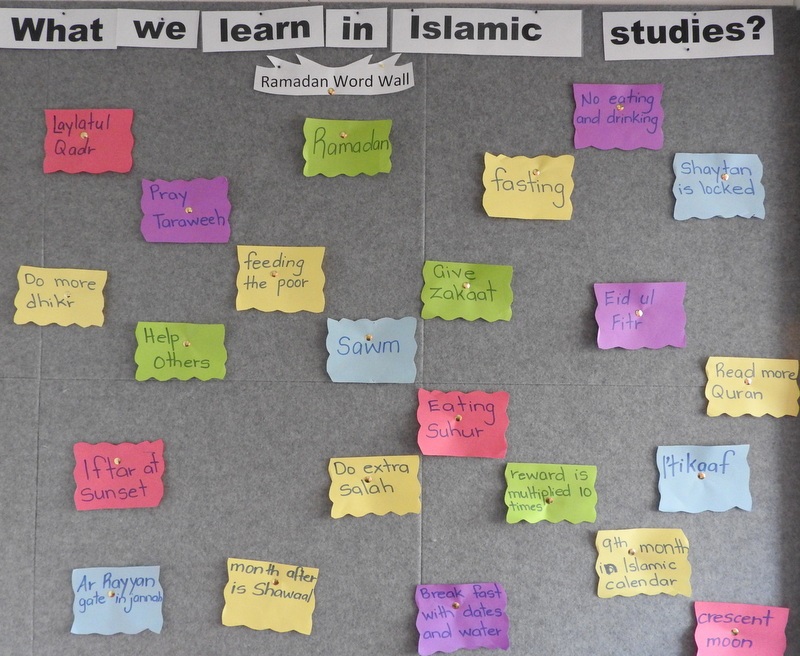 What we learn in Islamic studies?
Ramadan Word Wall
No eating
and drinking
Laylatul
Qadr
Ramadan
fasting
Shaytan
is locked
Pray
Taraweeh
feeding
the poor
Give
zakaat
Do more
dhikr
Eid ul
Fitr
Help
Others
Sawm
Read more
Quran
Eating
Suhur
Iftar at
sunset
Do extra
salah
reward is
multiplied 10
times
I'tikaaf
9th month
in Islamic
calendar
Ar Rayyan
gate in jannah
month after
is Shawaal
Break fast
with dates
and water
crescent
moon